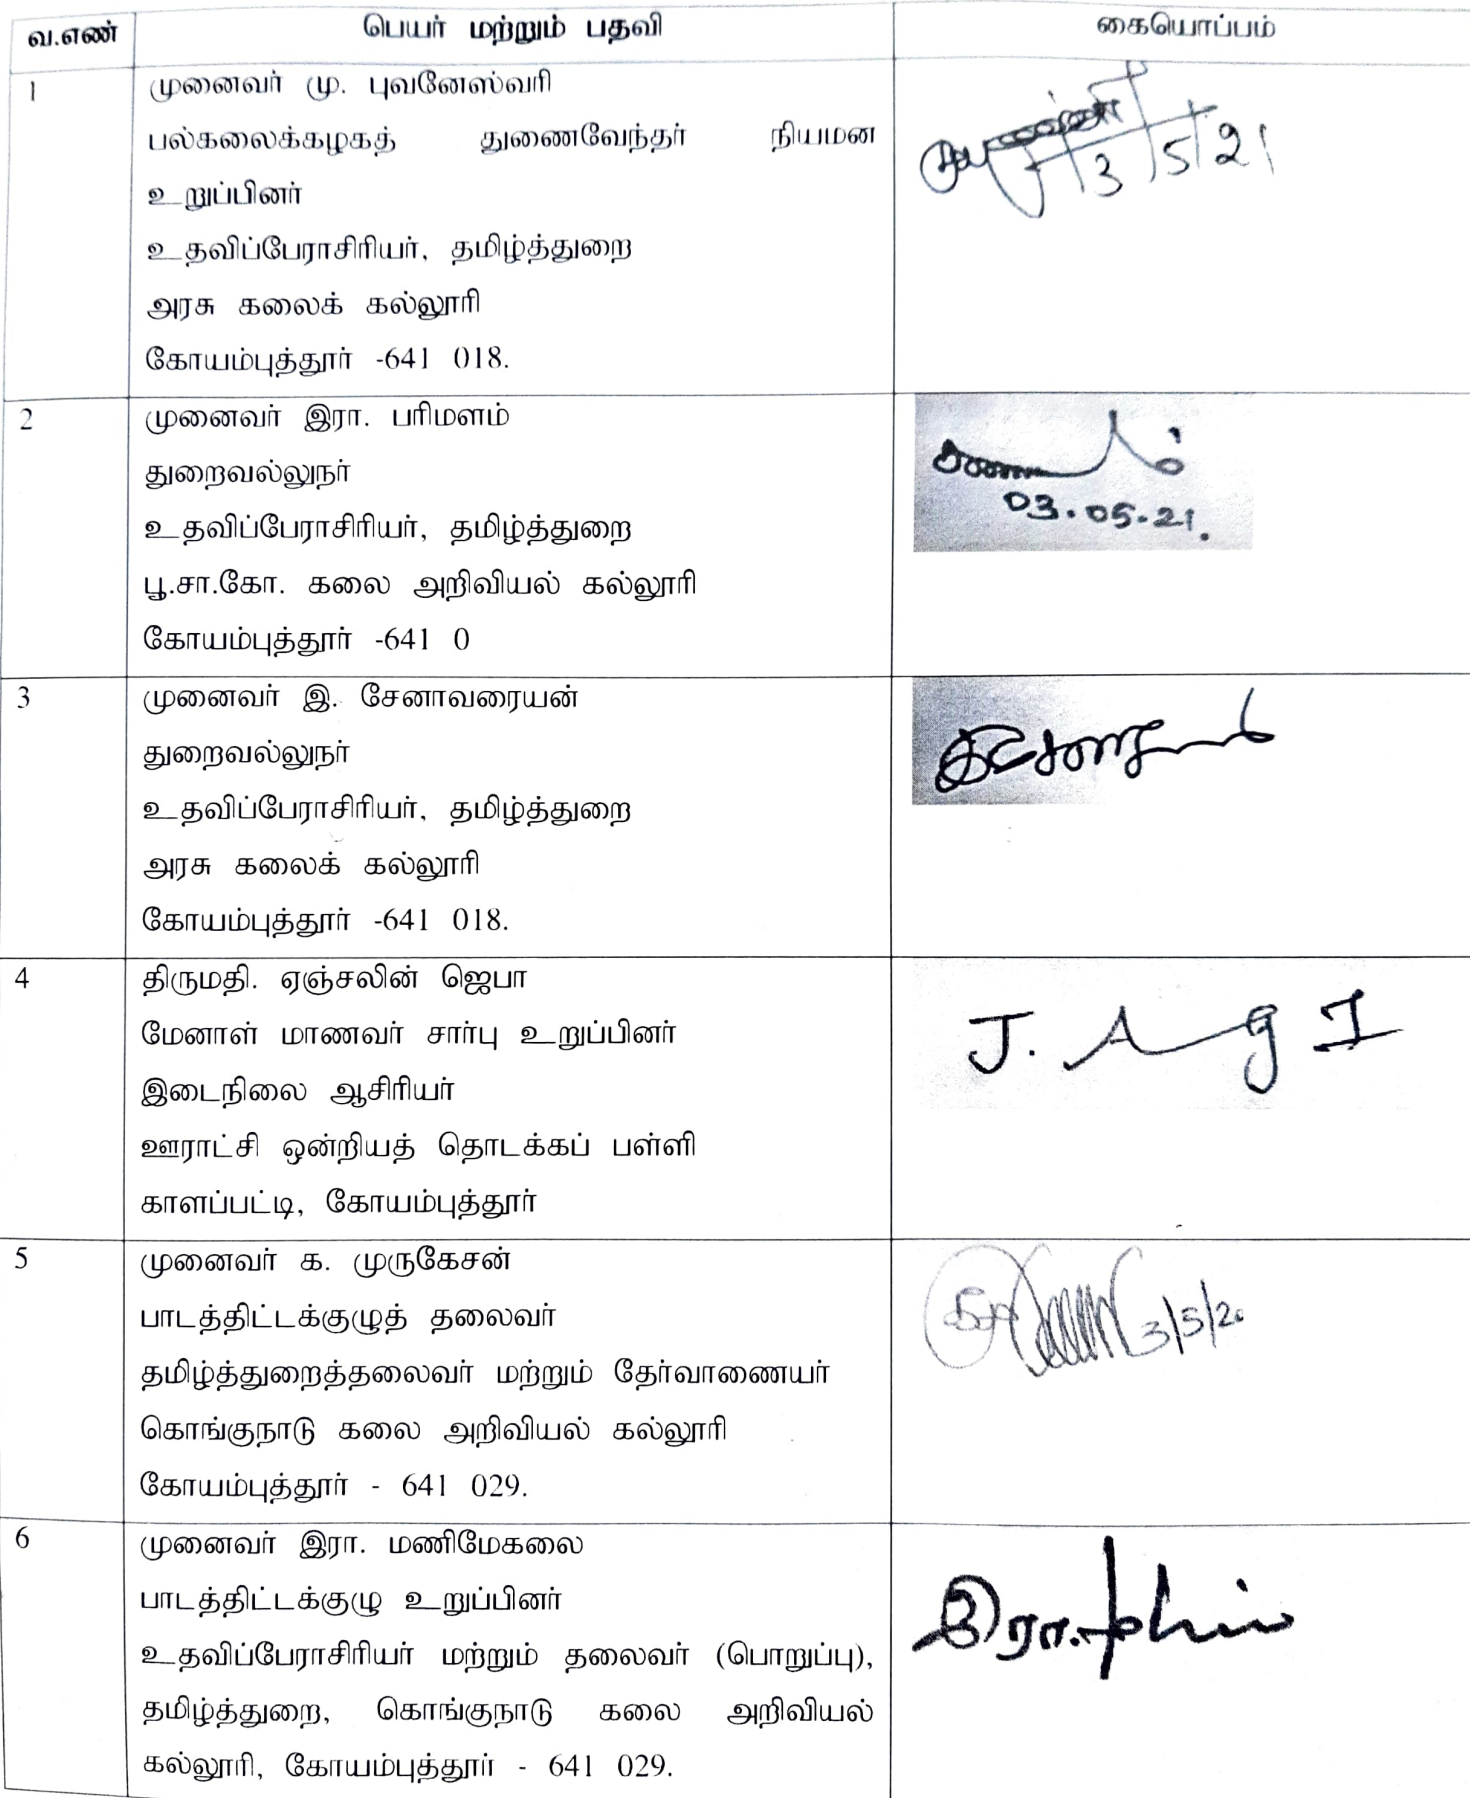 வ.எண் பெயர் மற்றும் பதவி கையொப்பம்
1 முனைவர் மு. புவனேஸ்வரி
பல்கலைக்கழகத் துணைவேந்தர் நியமன
உறுப்பினர்
உதவிப்பேராசிரியர், தமிழ்த்துறை
அரசு கலைக் கல்லூரி
கோயம்புத்தூர் -641 018.
3/5/21
2 முனைவர் இரா. பரிமளம்
துறைவல்லுநர்
உதவிப்பேராசிரியர், தமிழ்த்துறை
பூ.சா.கோ. கலை அறிவியல் கல்லூரி
கோயம்புத்தூர் -641 0
03.05.21.
3 முனைவர் இ. சேனாவரையன்
துறைவல்லுநர்
உதவிப்பேராசிரியர், தமிழ்த்துறை
அரசு கலைக் கல்லூரி
கோயம்புத்தூர் -641 018.
4 திருமதி. ஏஞ்சலின் ஜெபா
மேனாள் மாணவர் சார்பு உறுப்பினர்
இடைநிலை ஆசிரியர்
ஊராட்சி ஒன்றியத் தொடக்கப் பள்ளி
காளப்பட்டி, கோயம்புத்தூர்
5 முனைவர் க. முருகேசன்
பாடத்திட்டக்குழுத் தலைவர்
தமிழ்த்துறைத்தலைவர் மற்றும் தேர்வாணையர்
கொங்குநாடு கலை அறிவியல் கல்லூரி
கோயம்புத்தூர் - 641 029.
3/5/20
6 முனைவர் இரா. மணிமேகலை
பாடத்திட்டக்குழு உறுப்பினர்
உதவிப்பேராசிரியர் மற்றும் தலைவர் (பொறுப்பு),
தமிழ்த்துறை, கொங்குநாடு கலை அறிவியல்
கல்லூரி, கோயம்புத்தூர் - 641 029.
இரா.